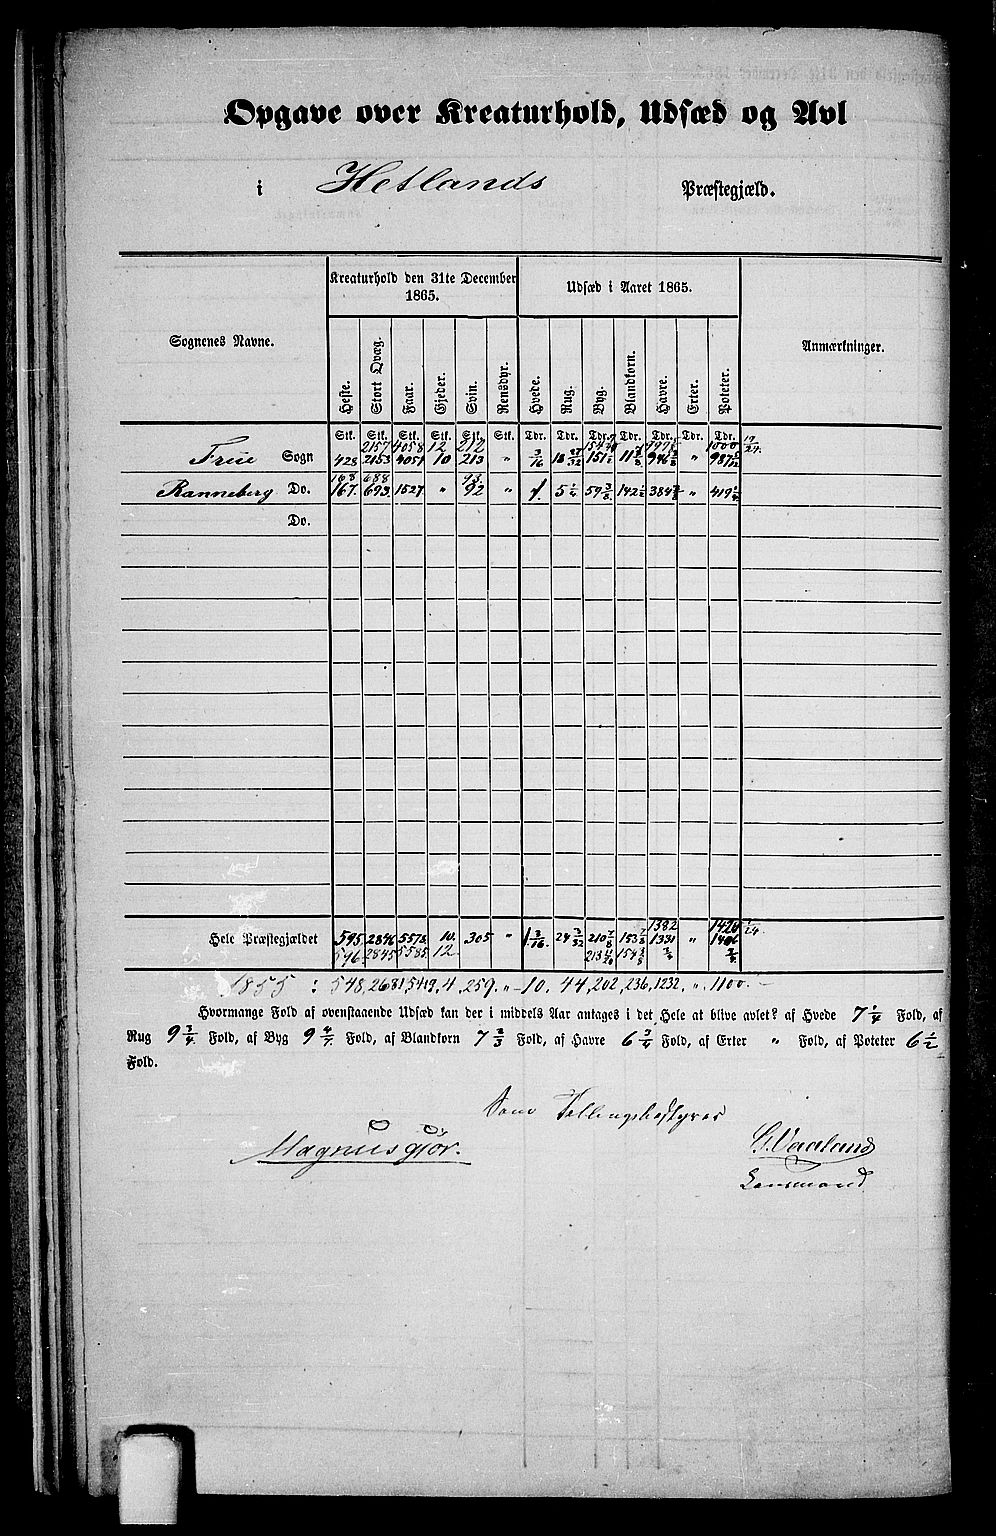 Opgave over Kreaturhold, Udsæd og Avl
i Hetlands Præstegjæld.
Kreaturhold den 31te December 1865.
Udsæd i Aaret 1865.
Sognenes Navne.
Anmærkninger.
Heste. Stort Qvæg. Faar. Gjeder. Svin. Rensdyr. Hvede. Rug. Byg. Blandkorn. Havre. Erter. Poteter.
Stk. Stk. Stk. Stk. Stk. Stk. Tdr. Tdr. Tdr. Tdr. Tdr. Tdr. Tdr.
2157 4058 12 212 1000 17/24
Frue Sogn 428 2153 4051 10 213 " 3/16 18 27/32 151 1/2 11 3/8 946 3/8 " 987 5/12
168 688 93
Ranneberg Do. 167. 693. 1527 " 92 " 1. 5 1/4 59 3/8 142 1/2 384 3/8 " 419 1/4
Do.
1382 1420 1/24
Hele Præstegjældet 595 2846 5578 10. 305 " 1 3/16 24 3/32 210 7/8 153 7/8 1331 3/4 " 1406 2/3
596 2845 5585 12 213 11/20 154 3/8
1855 : 548, 2681, 5419, 4, 259, " 10, 44, 202, 236, 1232, ", 1100.
Hvormange Fold af ovenstaaende Udsæd kan der i middels Aar antages i det Hele at blive avlet? af Hvede 7 1/4 Fold, af
Rug 9 3/4 Fold, af Byg 9 4/7 Fold, af Blandkorn 7 2/3 Fold, af Havre 6 3/4 Fold, af Erter " Fold, af Poteter 6 1/2
Fold.
Som Tellingsbestyrer
Magnus Gjör. G. Vaaland
Lensmand